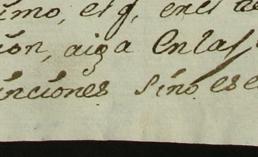 imo, el q, en el de
ion, aiga en las
inciones. Sino es e